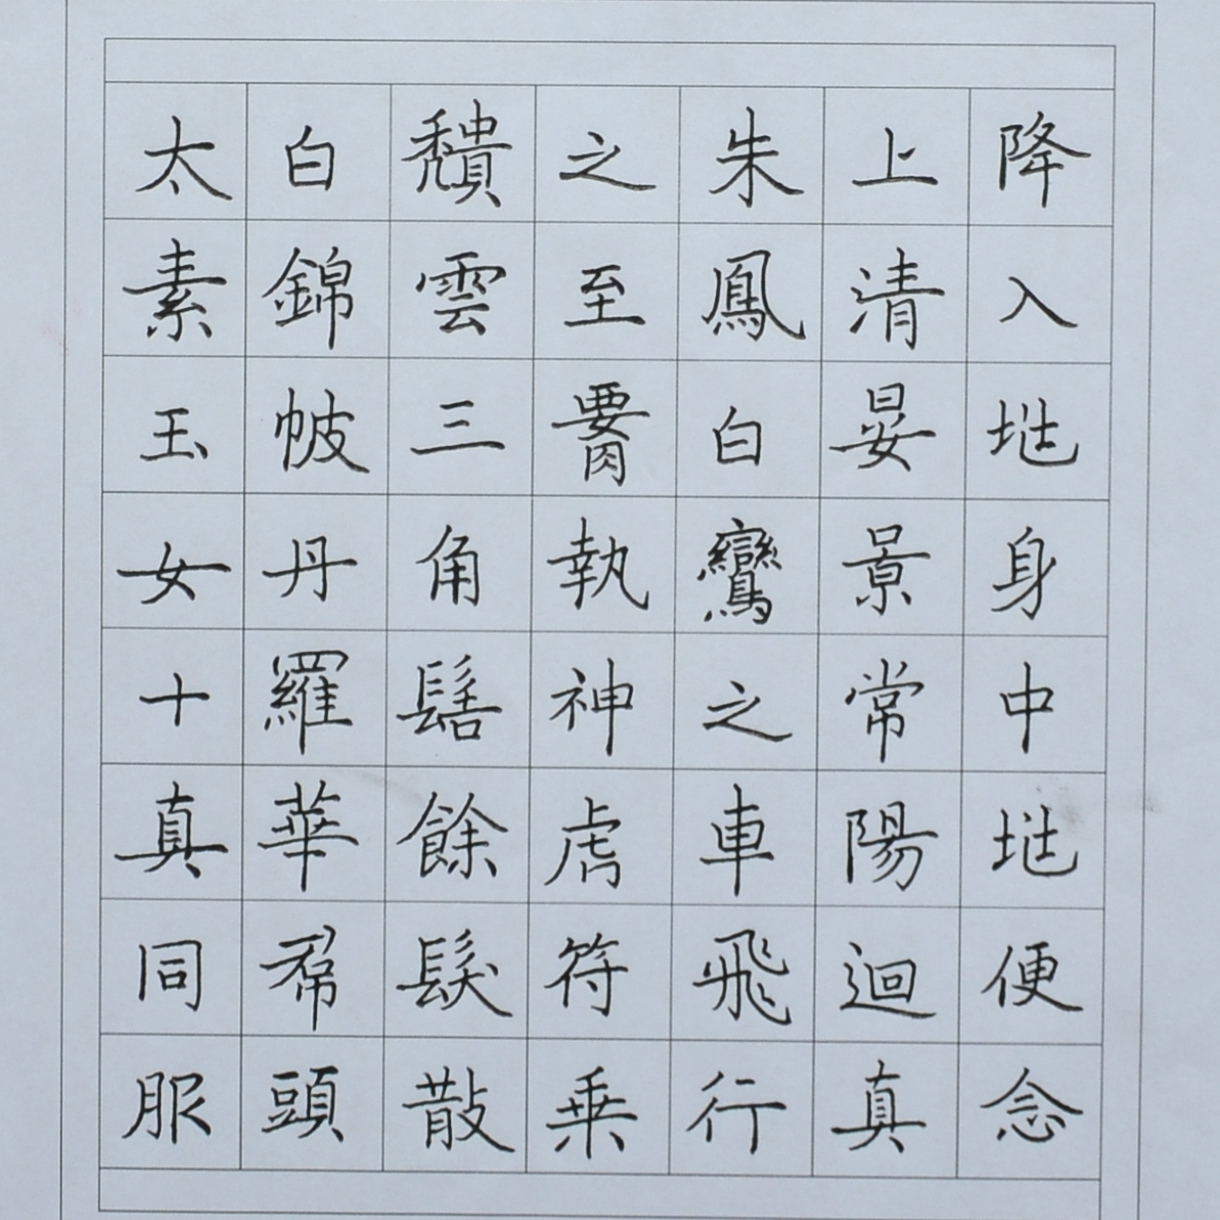 降入兆身中兆便念
上清晏景常陽迴真
朱鳳白鸞之車飛行
之至腰執神虎符乘
穨雲三角髻餘髮散
白錦帔丹羅華帬頭
太素玉女十真同服